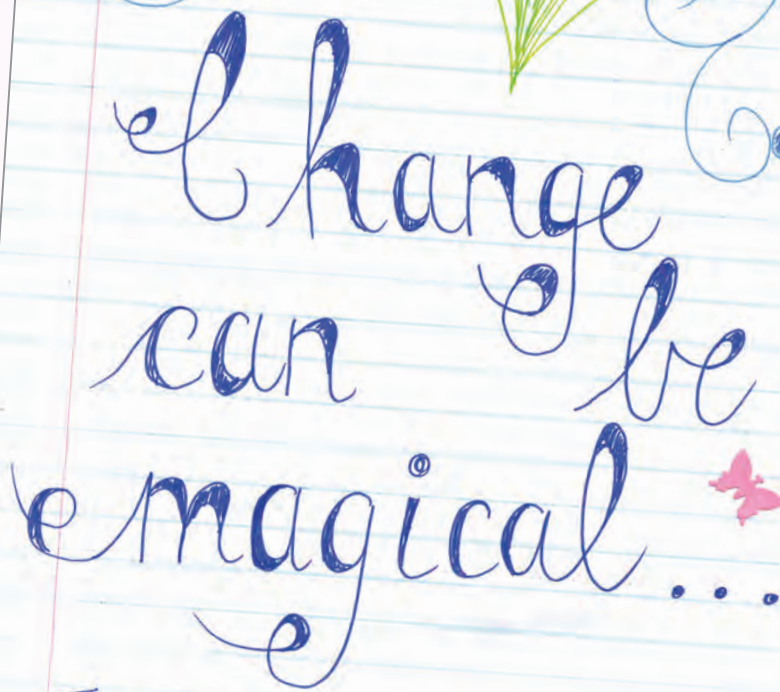 Change
can be
magical...